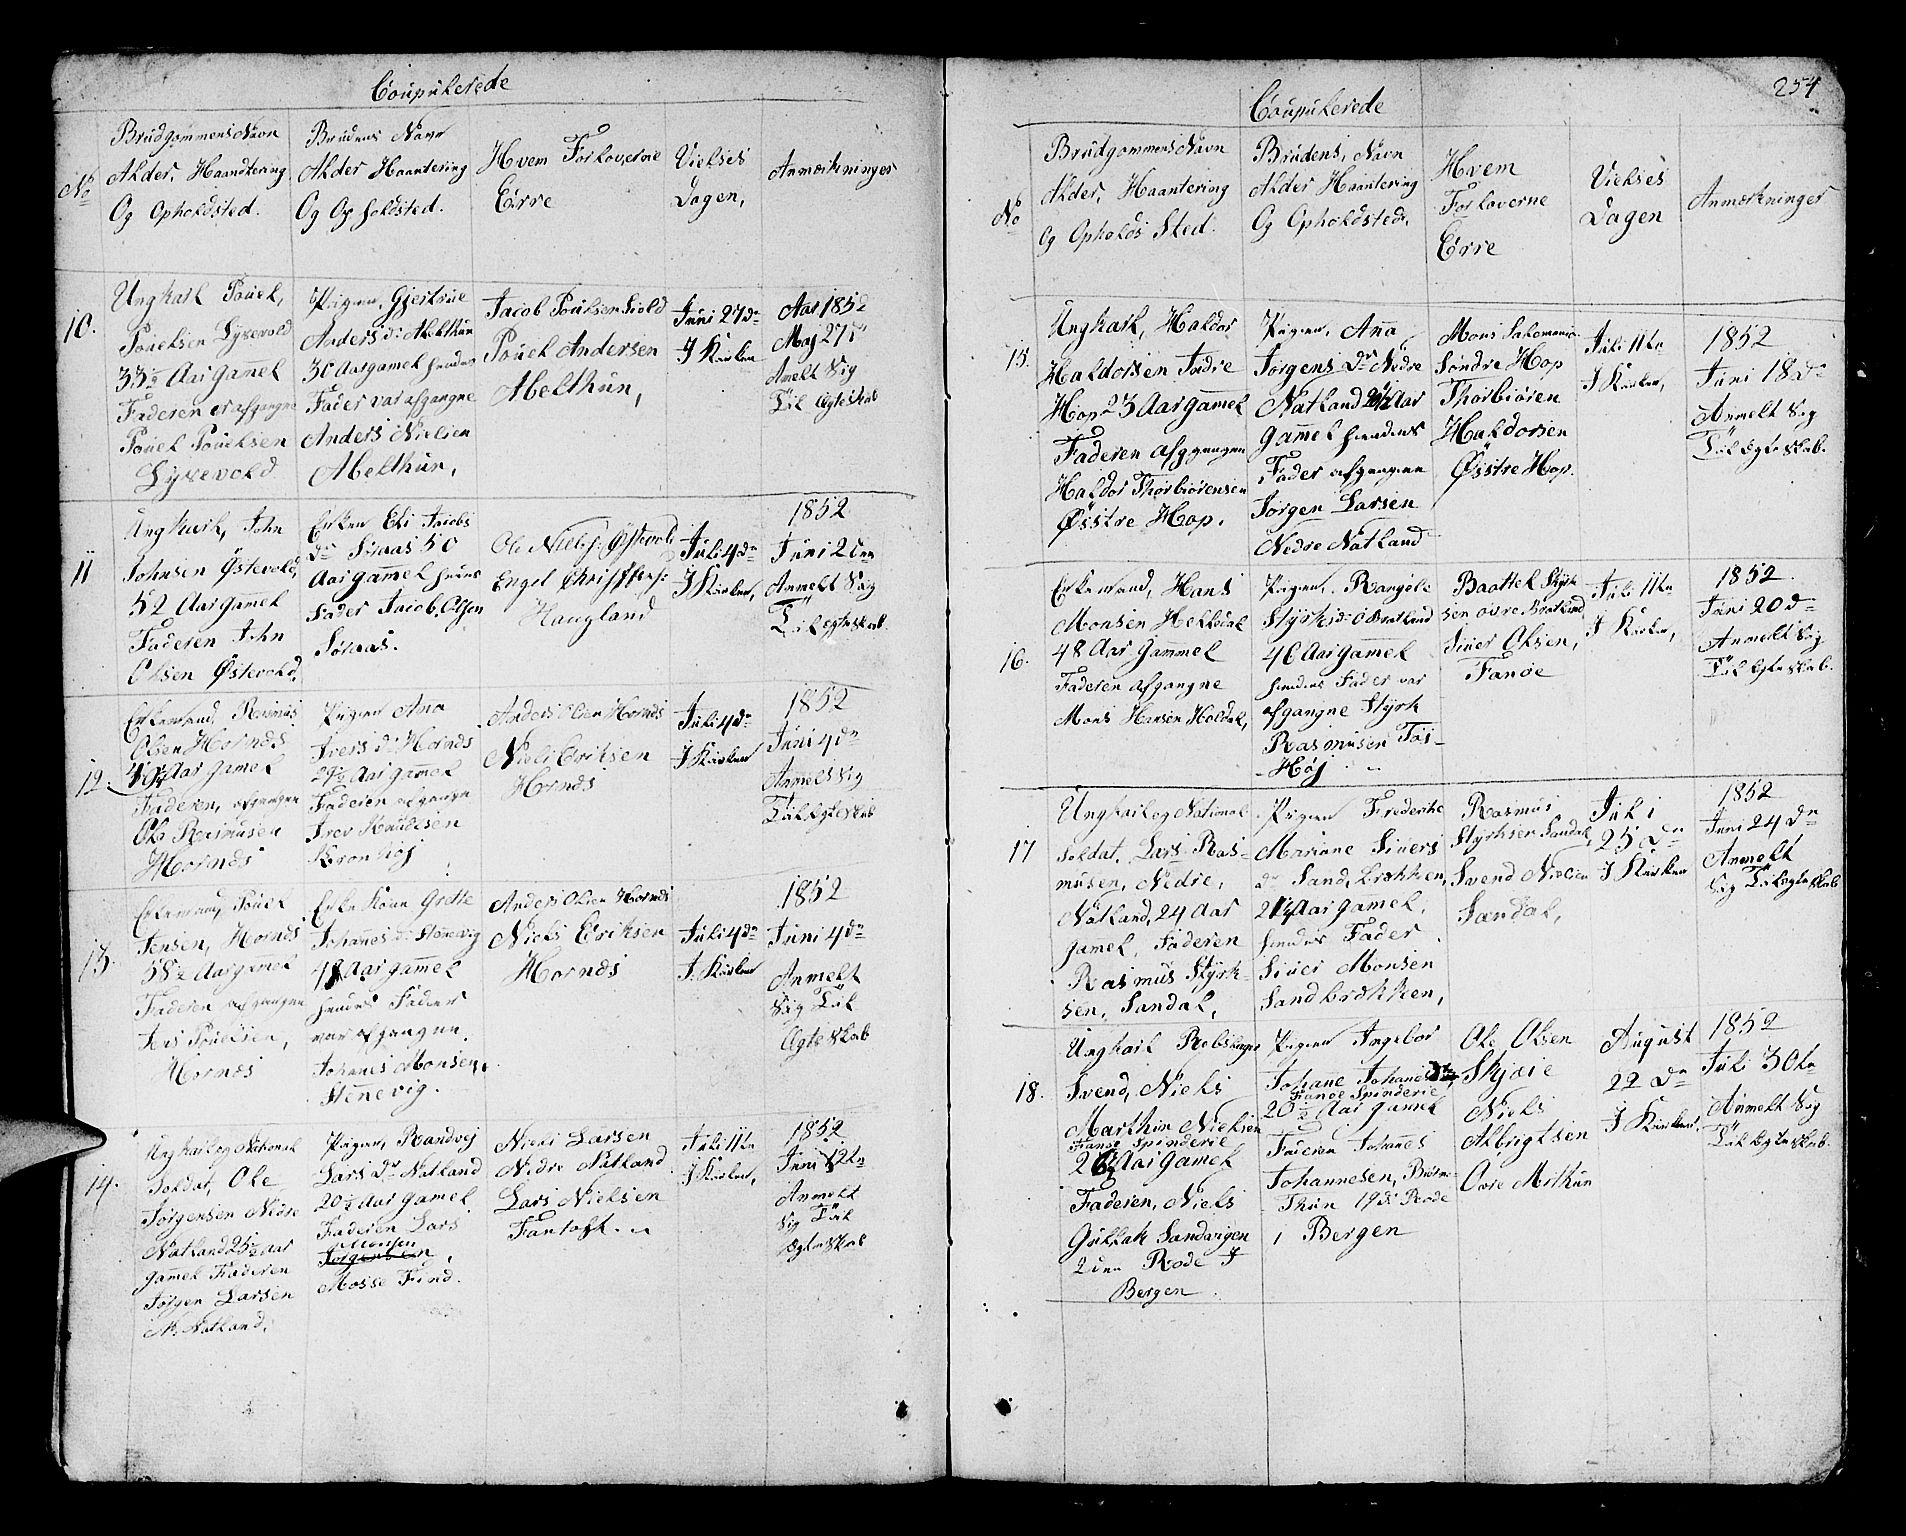 Coupulerede
No
Brudgommens Navn
Alder, Haandtering
Og Opholdsted.
Brudens Navn
Alder Haantering
Og Opholdsted.
Hvem Forloverne
Erre
Vielses
Dagen,
Anmærkninger
10.
Ungkarl Pouel,
Pouelsen Lysevold
33½ Aar Gamel
Faderen er afgangne
Pouel Pouelsen
Lysevold
Pigen, Gjertrue
Anders dr Abelthun
30 Aar gamel hendes
Fader var afgangne
Anders Nielsen
Abelthun,
Jacob Poulsen Liold
Pouel Andersen
Abelthun,
Juni 27de
I Kirken
Aar 1852
Maj 27de
Amelt Sig
Til Egteskab
11
Ungkarl, John
Johnsen Østevold,
52 Aar Gamel
Faderen John
Olsen Østevold,
Enken Eli Jacobs
dr Sinaas 50
Aar gammel hendes
Fader Jacob Olsen
Sønaas.
Ole Niels: Østevold
Engel Christens:
Haugland
Juli 4de
I Kirken,
1852
Juni 2den
Anmelt Sig
Til Egteskab.
12.
Enkemand Rasmus
Olsen Hornæs
49½ Aar gamel
Faderen, afgangen
Ole Rasmusen
Hornæs
Pigen Ana
Ivers dr Hornæs
29½ Aar gamel
Faderen afgangen
Iver Knudsen
Kronhøj
Anders Olsen Hornæs
Niels Eriksen
Hornæs
Juli 4de
I Kirken
1852
Juni 4de
Anmelt Sig
Til Egteskab
13.
Enkemand, Pouel
Jensen, Hornæs
58½ Aar gamel
Faderen afgangen
Jens Pouelsen,
Hornæs
Enke Kone Grethe
Johannes dr Stenevig
48 Aar gamel
hendes Fader
var afgangne
Johanes Monsen,
Stenevig.
Anders Olsen Hornæs
Niels Eriksen
Hornæs
Juli 4de
I. Kirken
1852
Juni 4de
Anmelt
Sig Til
Egteskab
14.
Ungkarl og National
Soldat, Ole
Jørgensen Nedre
Natland 25½ Aar
gamel Faderen
Jørgen Larsen
N. Natland,
Pigen, Randvej
Lars dr Natland
20½ Aar gamel
Faderen Lars
Monsen
Jørgensen,
Mosse Find.
Niels Larsen
Nedre Natland
Lars Nielsen
Fantoft.
Juli 11te
I Kirken,
1852
Juni 12te
Anmelt
Sig Til
Egteskab
254
Coupulerede
No
Brudgommens Navn
Alder, Haantering
Og Opholds Sted.
Brudens, Navn
Alder Haantering
Og Opholdsted.
Hvem
Forloverne
Erre
Vielses
Dagen
Anmærkninger
15.
Ungkarl, Haldor
Haldorsen Indre
Hop 23 Aar gamel
Faderen afgangen
Haldor Thorbiørensen
Østre Hop.
Pigen, Ana
Jørgens Dr Nedre
Natland 20½ Aar
gammel hendes
Fader afgangen
Jørgen Larsen
Nedre Natland
Mons Salomons
Søndre Hop
Thorbiøren
Haldorsen
Østre Hop.
Juli 11te
I Kirken,
1852
Juni 18de
Anmelt Sig
Til Egteskab.
16.
Enkemand, Hans
Monsen Heldal
48 Aar Gammel
Faderen afgangne
Mons Hansen Holdal,
Pigen, Rangele
Styrks dr O Bratland
40 Aar gamel
hendes Fader var
afgangne Styrk
Rasmusen Tøs-
-Høj
Baattel Styrk
sen øvre Bratland
Siver Olsen,
Fanøe
Juli 11te
I Kirken,
1852.
Juni 20de
Anmelt Sig
Til Egteskab.
17
Ungkarl og National
Soldat, Lars Ras-
musen, Nedre,
Natland, 24 Aar
gamel, Faderen
Rasmus Styrk-
sen, Sandal,
Pigen Frederike
Mariane Sivers
dr Sandbrækken,
21½ Aar gamel,
hendes Fader
Siver Monsen
Sandbrækken,
Rasmus
Styrksen Sandal,
Svend Nielsen
Sandal,
Juli
25de
I Kirken
1852
Juni 24de
Anmelt
Sig Til Egteskab
18.
Ungkarl Rebslager
Svend, Niels
Marthin Nielsen
Fanøe Spinderie
26½ Aar Gamel
Faderen, Niels
Gullak Sandvigen
2den Rode I
Bergen
Pigen Ingebor
Johane Johanes dr
Fanøe Spinderie
20½ Aar gamel
Faderen Johanes
Johannesen,
Thun 19de Rode
i Bergen
Ole Olsen
Skjøie
Niels
Albrigtsen
Ovre Mithun
August
22de
I Kirken,
1852
Juli 30te
Anmelt Sig
Til Egteskab.